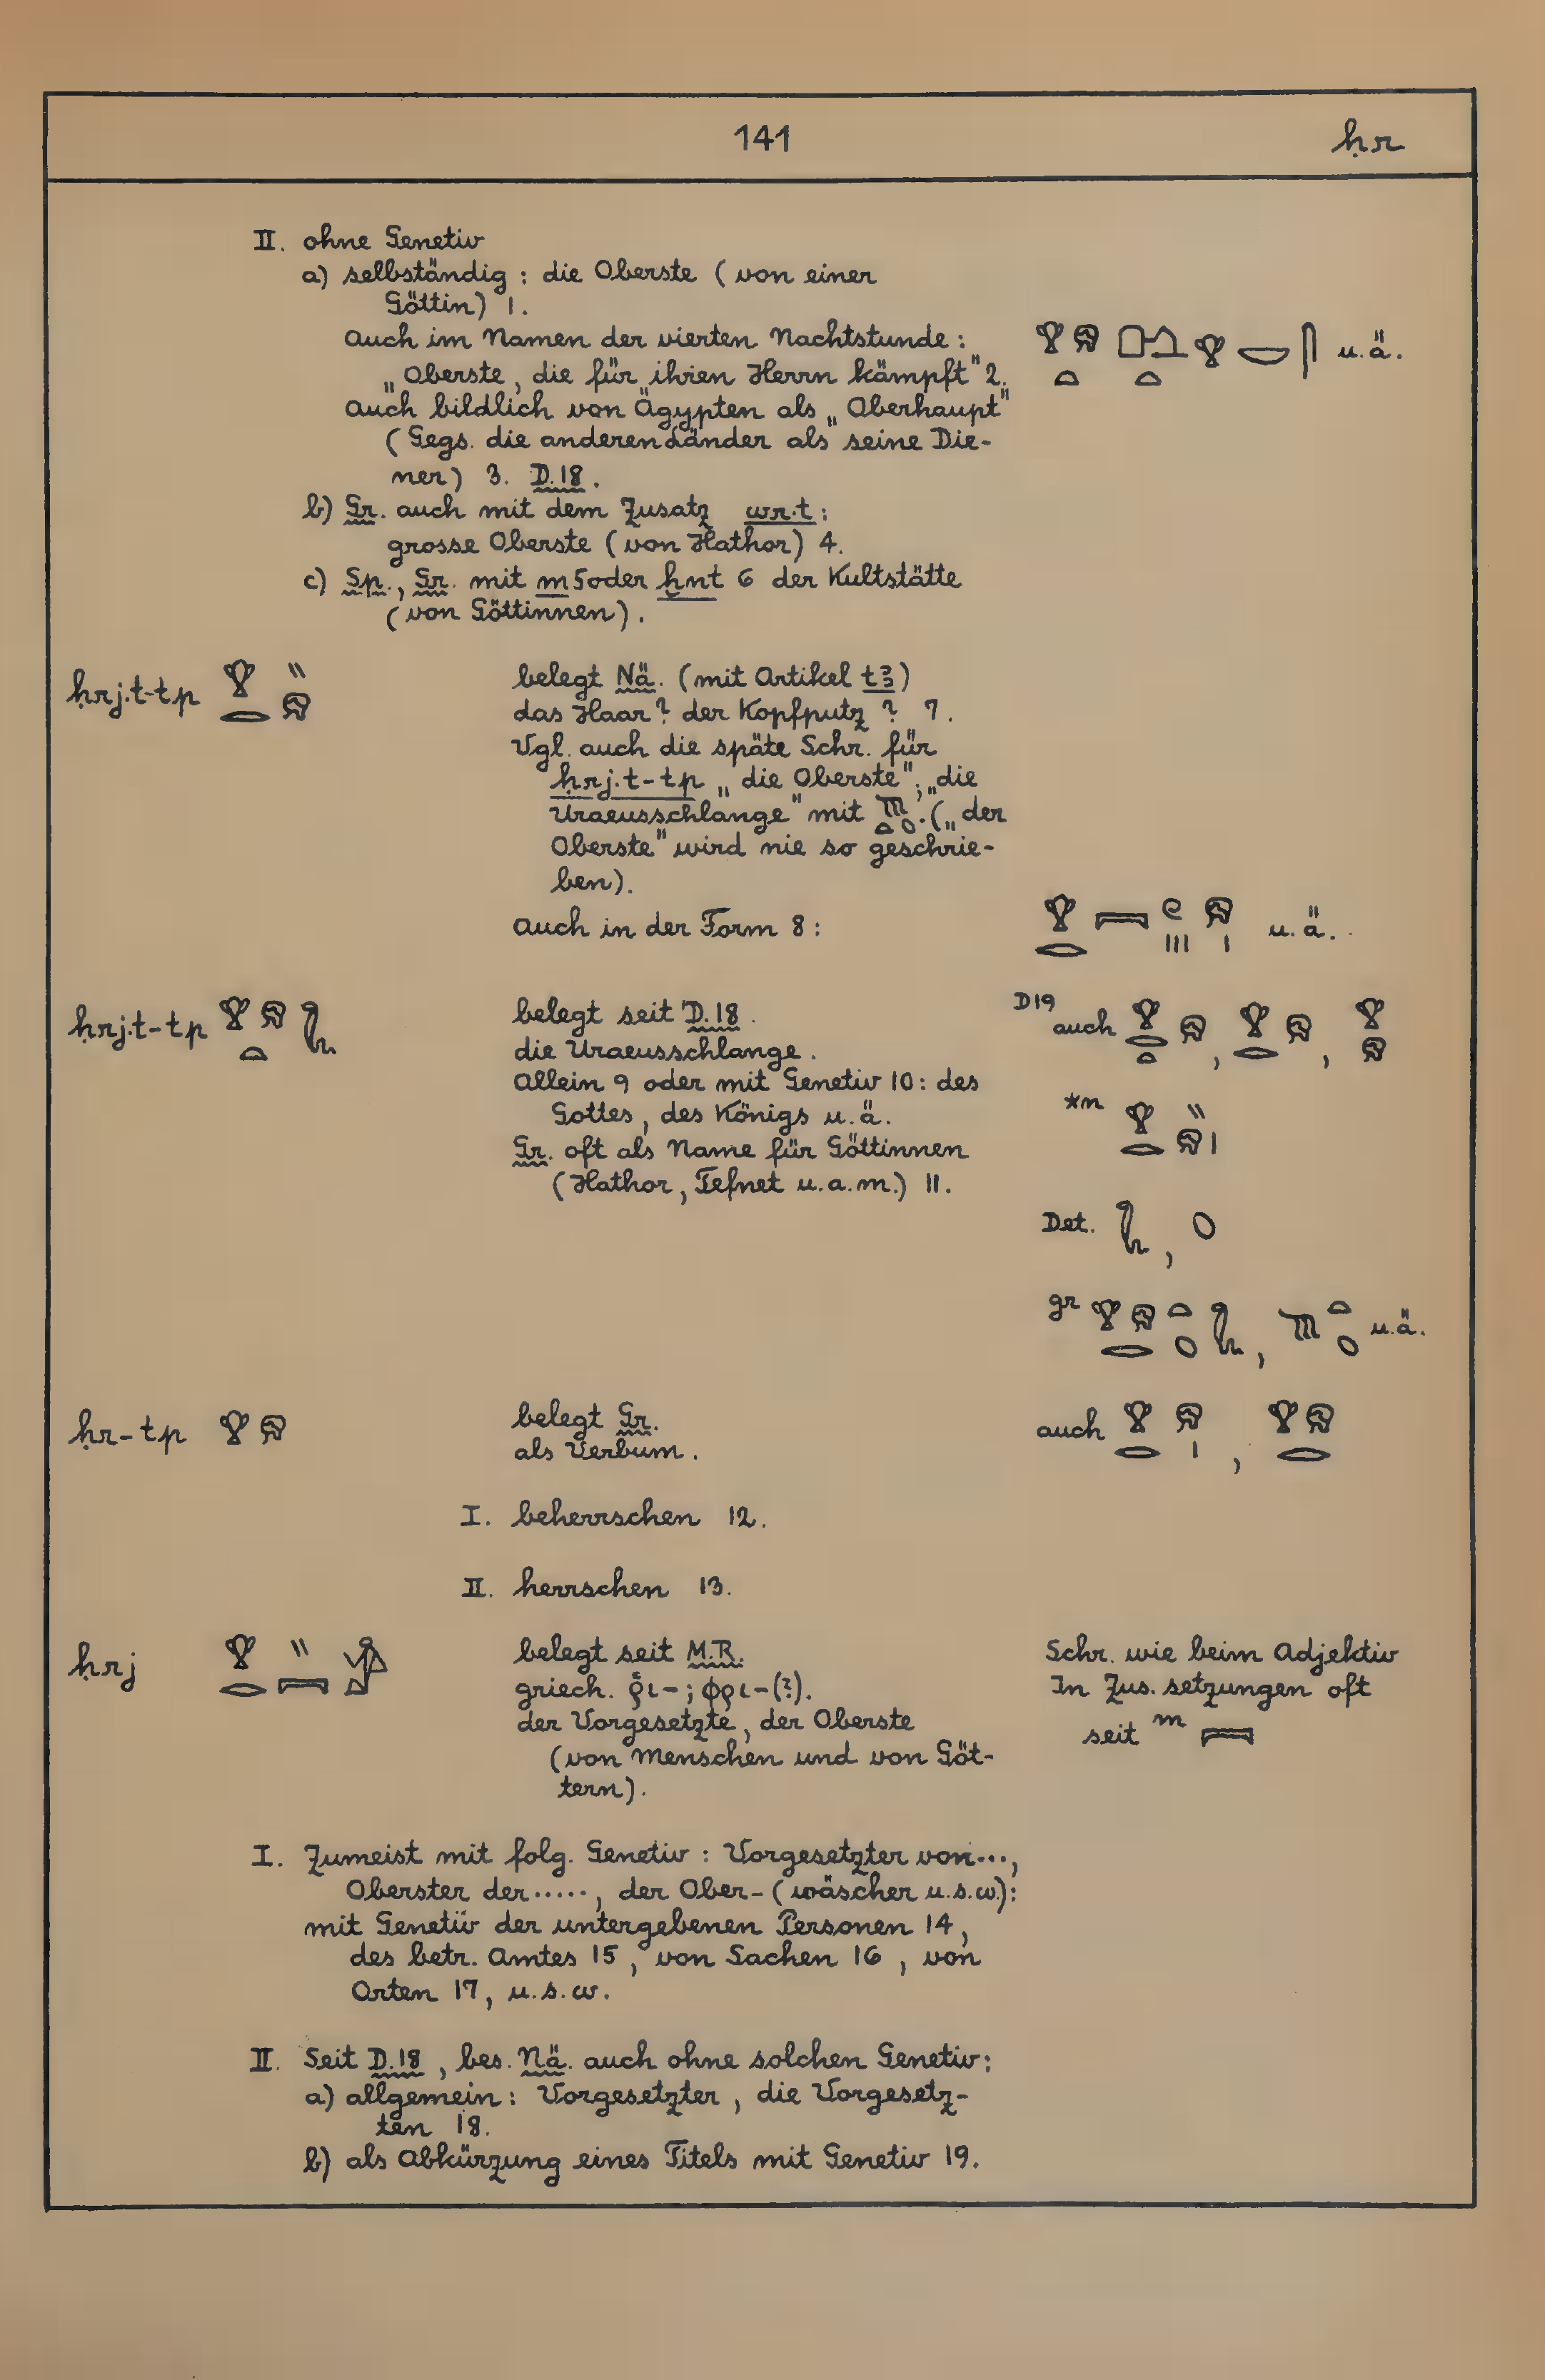 141
ḥr
II. ohne Genetiv
a) selbständig : die Oberste ( von einer
Göttin) 1.
Auch im Namen der vierten Nachtstunde :
„Oberste, die für ihren Herrn kämpft" 2.
u.ä.
Auch bildlich von Ägypten als „Oberhaupt"
( Gegs. die anderen Länder als seine Die-
ner) 3. D.18.
b) Gr. auch mit dem Zusatz wr.t :
grosse Oberste ( von Hathor) 4.
c) Sp., Gr. mit m 5 oder ḫnt 6 der Kultstätte
( von Göttinnen ).
ḥrj.t-tp
belegt Nä. (mit Artikel tꜣ)
das Haar? der Kopfputz ? 7.
Vgl. auch die späte Schr. für
ḥrj.t-tp „die Oberste"; „die
Uraeusschlange" mit . („der
Oberste" wird nie so geschrie-
ben).
Auch in der Form 8 :
u.ä.
ḥrj.t-tp
belegt seit D.18.
die Uraeusschlange.
Allein 9 oder mit Genetiv 10 : des
Gottes, des Königs u.ä.
Gr. oft als Name für Göttinnen
( Hathor, Tefnet u.a.m.) 11.
D19 auch , ,
*n
Det. ,
gr , u.ä.
ḥr-tp
belegt Gr.
als Verbum.
auch ,
I. beherrschen 12.
II. herrschen 13.
ḥrj
belegt seit M.R.
griech. ῥι- ; φρι-(?).
der Vorgesetzte, der Oberste
( von Menschen und von Göt-
tern ).
Schr. wie beim Adjektiv
In Zus. setzungen oft
seit m
I. Zumeist mit folg. Genetiv : Vorgesetzter von...,
Oberster der ....., der Ober- ( wäscher u.s.w.):
mit Genetiv der untergebenen Personen 14,
des betr. Amtes 15, von Sachen 16, von
Orten 17, u.s.w.
II. Seit D.18, bes. Nä. auch ohne solchen Genetiv :
a) allgemein : Vorgesetzter, die Vorgesetz-
ten 18.
b) als Abkürzung eines Titels mit Genetiv 19.